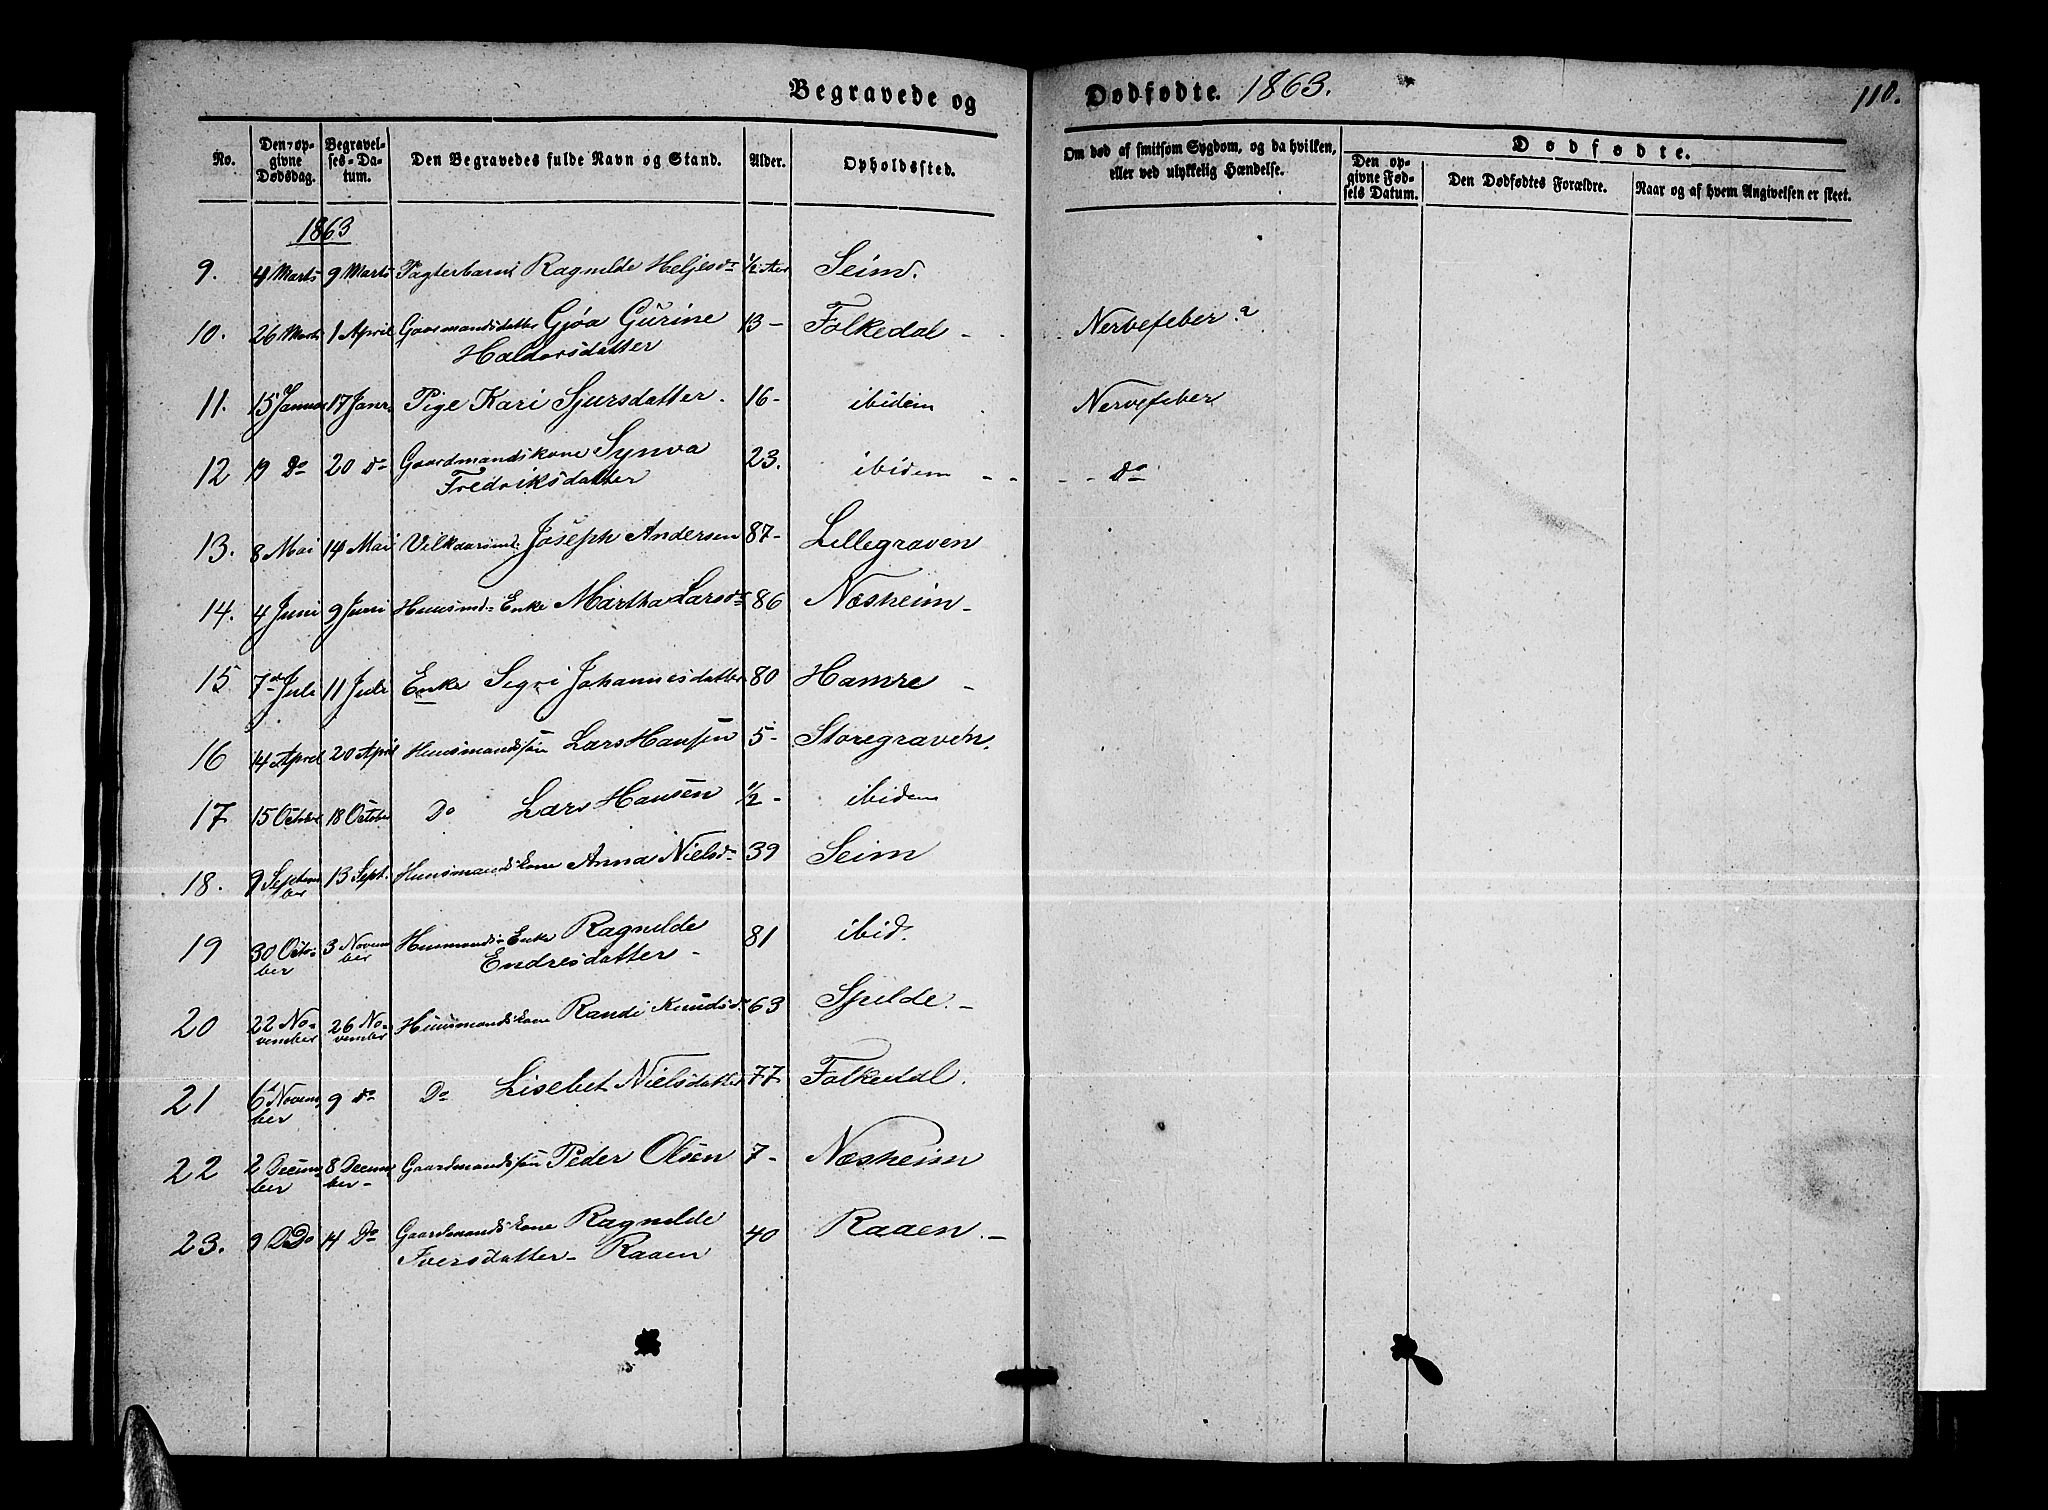 Begravede og
Dødfødte. 1863.
110.
No.
Den opgivne Dødsdag.
Begravelses-Datum.
Den Begravedes fulde Navn og Stand.
Alder.
Opholdssted.
Om død af smitsom Sygdom, og da hvilken, eller ved ulykkelig Hændelse.
Dødfødte.
Den opgivne Fødsels Datum.
Den Dødfødtes Forældre.
Naar og af hvem Angivelsen er skeet.
1863
9. 4 Marts 9 Marts Ragnilde Heljesdr 1/2 Aar Seim.
10. 26 Marts 1 April Gaarmandsdatter Gjøa Gurine 13 - Folkedal - Nervefeber?
Haldorsdatter
11. 15 Januar 17 Janr. Pige Kari Sjursdatter. 16 - ibidem Nervefeber
12 19 Do 20 do Gaardmandskone Synva 23. ibidem - - - - do
Fredriksdatter
13. 8 Mai 14 Mai Joseph Andersen 87 - Lillegraven
14. 4 Juni 9 Juni Huusmds Enke Martha Larsdr 86 Næsheim -
15 7de Juli 11 Juli Enke Segri Johannesdatter 80 Hamre -
16 14 April 20 April Huusmandssøn Lars Hansen 5 - Storegraven.
17 15 October 18 October Do Lars Hansen 1/2 - ibidem
18. 9 September 13 Sept. Huusmandskone Anna Nielsdr 39 Seim
19 30 October 3 November Huusmands Enke Ragnilde 81 ibid.
Endresdatter -
20 22 November 26 November Huusmandskone Randi Knudsdr 63 Spilde. -
21 6te November 9 do Do Lisebet Nielsdatter 77 Folkedal.
22 2 December 8 December - Gaardmandssøn Peder Olsen 7 - Næsheim
23. 9 Do 14 Do Gaardmandskone Ragnilde 40 Raaen. -
Iversdatter - Raaen